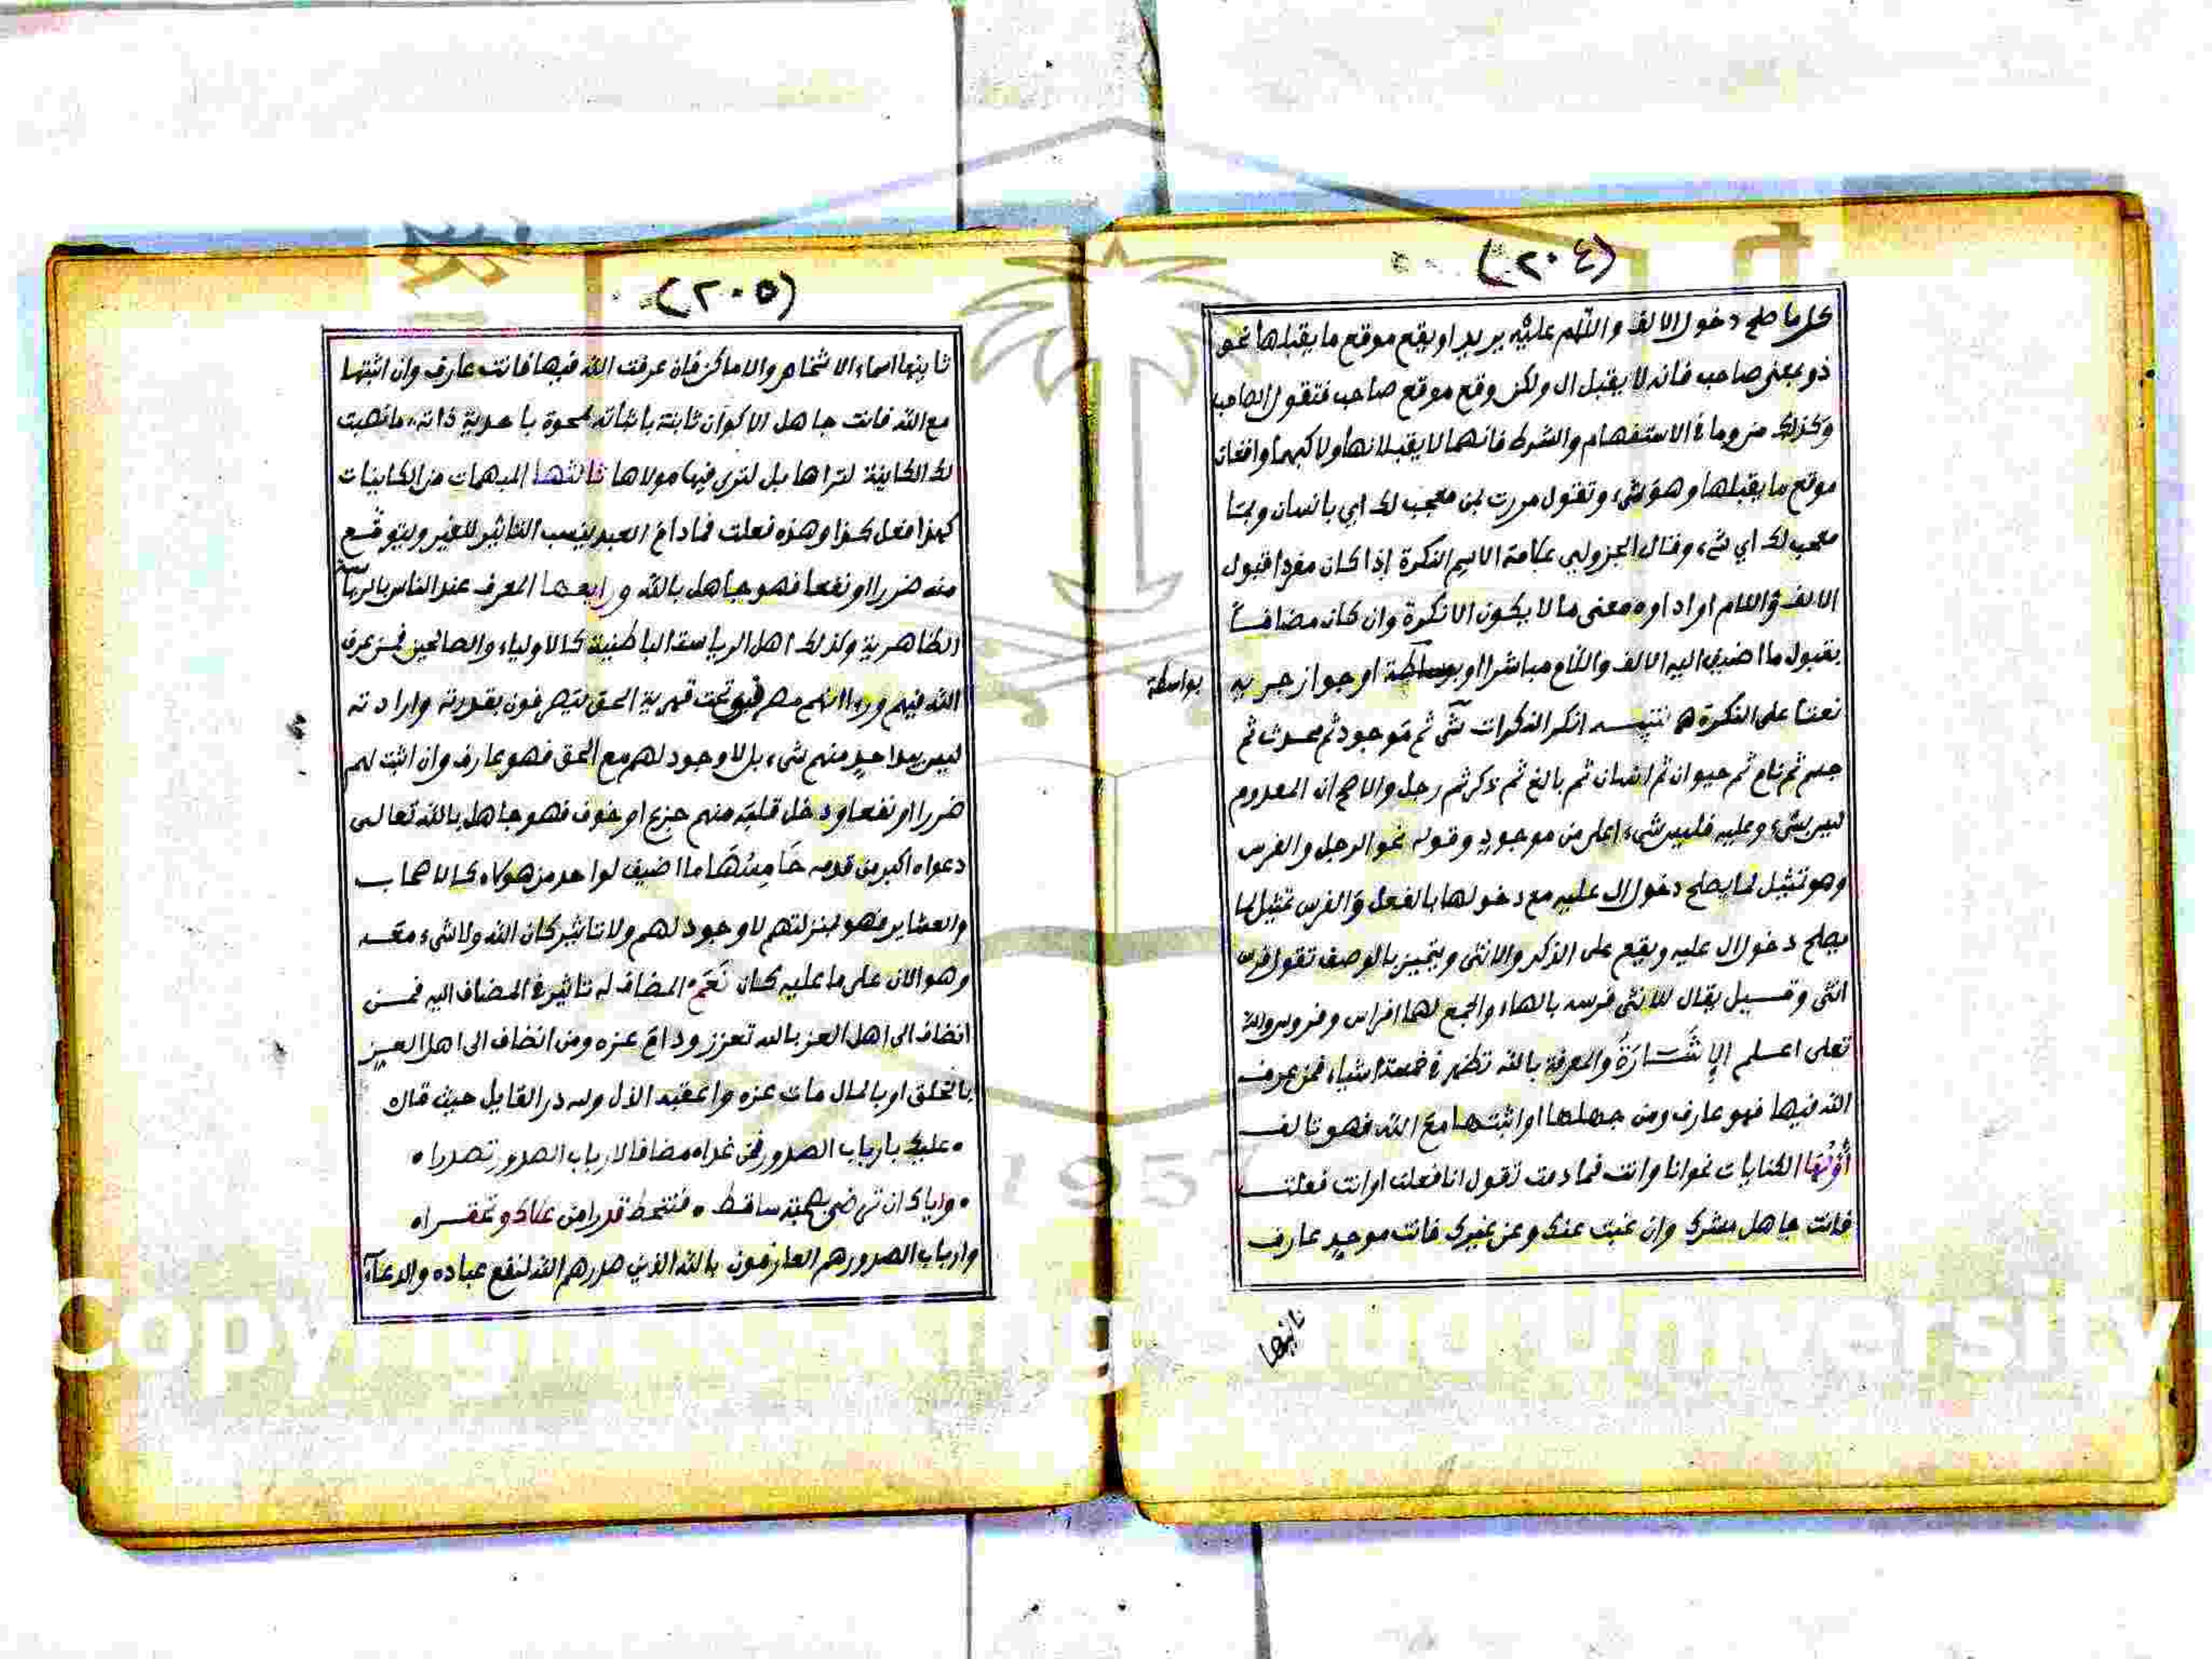 (٢٠٤)
كل ما صلح دخول الالف واللام عليه يريد او يقع موقع ما يقبلها نحو
ذو بمعنى صاحب فانه لا يقبل ال ولكن وقع موقع صاحب فتقول الصاحب
وكذلك من وما في الاستفهام والشرط فانهما لا يقبلانها ولاكنهما واقعان
موقع ما يقبلها وهو شيء وتقول مررت بمن معجب لك اي بانسان وبما
معجب لك اي شيء وقال الجزولي علامة الاسم النكرة اذا كان مفردا قبول
الالف واللام او اداوه معنى ما لا يكون الا نكرة وان كان مضافا
بقبول ما اضيف اليه الالف واللام مباشرا او بوساطة او جواز جريه
بواسطة
نعتا على النكرة ه تنبيه انكر النكرات شي ثم موجود ثم محدث ثم
جسم ثم نام ثم حيوان ثم انسان ثم بالغ ثم ذكر ثم رجل والاصح ان المعدوم
ليس بشيء وعليه فليس شيء اعلى من موجود وقوله نحو الرجل والفرس
وهو تمثيل لما يصلح دخول ال عليه مع دخولها بالفعل والفرس تمثيل لما
يصلح دخول ال عليه ويقع على الذكر والانثى ويتميز بالوصف تقول فرس
انثى وقيل يقال للانثى فرسه بالهاء والجمع لهما افراس وفروس والله
تعلى اعلم الإِشَارَةُ والمعرفة بالله تظهر في خمسة اشياء فمن عرف
الله فيها فهو عارف ومن جهلها او اثبتها مع الله فهو تالف
أولها الكنايات نحو انا وانت فما دمت تقول انا فعلت او انت فعلت
فانت جاهل مشرك وان غبت عنك وعن غيرك فانت موحد عارف
ثانيها
(٢٠٥)
ثانيها اسماء الاشخاص والاماكن فان عرفت الله فيها فانت عارف وان اثبتها
مع الله فانت جاهل الاكوان ثابتة باثباته ممحوة باحدية ذاته، ما نصبت
لك الكاينة لتراها بل لترى فيها مولاها ثالثها المبهمات من الكاينات
كهذا فعل كذا وهذه فعلت فما دام العبد ينسب التاثير للغير ويتوقع
منه ضررا او نفعا فهو جاهل بالله ورابعها المعرف عند الناس بالرياسة
الظاهرية وكذلك اهل الرياسة الباطنية كالاولياء والصالحين فمن عرف
الله فيهم وراا انهم تحت قهرية الحق يتصرفون بقدرته وارادته
ليس بيد احد منهم شيء بل لا وجود لهم مع الحق فهو عارف وان اثبت لهم
ضررا او نفعا ودخل قلبه منهم جزع او خوف فهو جاهل بالله تعالى
دعواه اكبر من قدمه خَامِسُهَا ما اضيف لواحد من هولاء كالاصحاب
والعشاير فهو بمنزلتهم لا وجود لهم ولا تاثير كان الله ولا شيء معه
وهو الان على ما عليه كان نَعَمْ المضاف له تاثير في المضاف اليه فمن
انضاف الى اهل العز بالله تعزز ودام عزه ومن انضاف الى اهل العز
بالخلق او بالمال مات عزه واعقبه الذل ولله در القايل حيث قال
ه عليك بارباب الصدور فمن غدا ه مضافا لارباب الصدور تصدرا ه
ه واياك ان ترضى بصحبة ساقط ه فتنحط قدرا من علاك وتحقرا ه
وارباب الصدور هم العارفون بالله الذين صدرهم الله لنفع عباده والدعاء